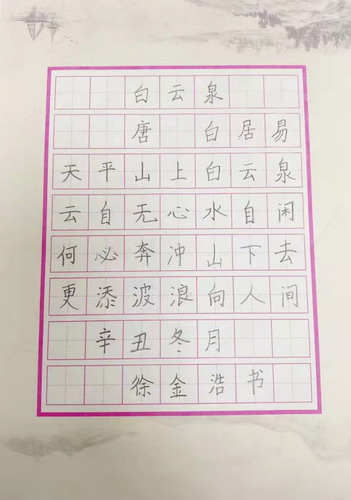 白云泉
唐 白居易
天平山上白云泉
云自无心水自闲
何必奔冲山下去
更添波浪向人间
辛丑冬月
徐金浩书